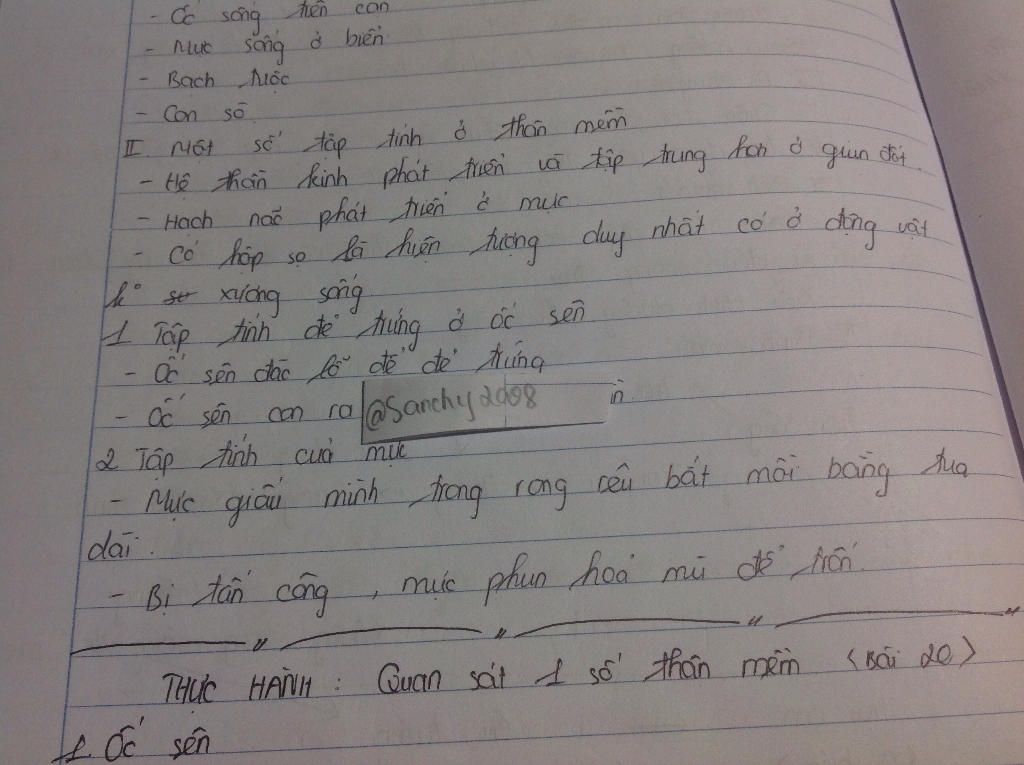 - Ốc sống trên cạn
- Mực sống ở biển
- Bạch tuộc
- Con sò
II. Một số tập tính ở thân mềm
- Hệ thần kinh phát triển và tập trung hơn ở giun đốt.
- Hạch não phát triển ở mực
- Có hộp sọ là hiện tượng duy nhất có ở động vật
k° xương sống
1 Tập tính đẻ trứng ở ốc sên
- Ốc sên đào lỗ để đẻ trứng
- Ốc sên con ra
@Sanchy2008
2 Tập tính của mực
- Mực giấu mình trong rong rêu bắt mồi bằng tua
dài.
- Bị tấn công, mực phun hoả mù để trốn.
THỰC HÀNH: Quan sát 1 số thân mềm (Bài 20)
1. Ốc sên